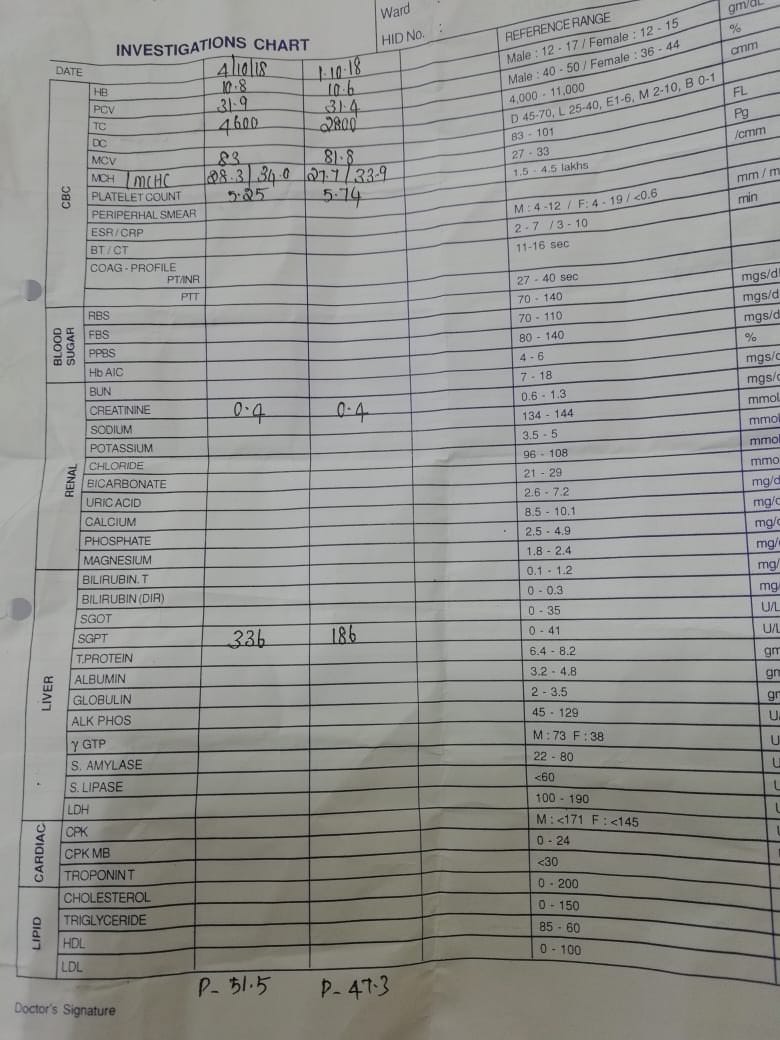 Ward
HID No. :
INVESTIGATIONS CHART
DATE 4/10/18 1.10.18 REFERENCE RANGE
HB 10.8 10.6 Male : 12 - 17 / Female : 12 - 15 gm/dL
PCV 31.9 31.4 Male : 40 - 50 / Female : 36 - 44 %
TC 4600 2800 4,000 - 11,000 cmm
DC D 45-70, L 25-40, E1-6, M 2-10, B 0-1
MCV 83 81.8 83 - 101 FL
MCH / MCHC 28.3 / 34.0 27.7 / 33.9 27 - 33 Pg
CBC
PLATELET COUNT 5.25 5.74 1.5 - 4.5 lakhs /cmm
PERIPERHAL SMEAR
ESR / CRP M : 4 -12 / F: 4 - 19 / <0.6 mm /
BT / CT 2 - 7 / 3 - 10 min
COAG - PROFILE
PT/INR 11-16 sec
PTT 27 - 40 sec
BLOOD SUGAR
RBS 70 - 140 mgs/d
FBS 70 - 110 mgs/d
PPBS 80 - 140 mgs/d
Hb AIC 4 - 6 %
RENAL
BUN 7 - 18
CREATININE 0.4 0.4 0.6 - 1.3
SODIUM 134 - 144 mmol
POTASSIUM 3.5 - 5 mmol
CHLORIDE 96 - 108 mmo
BICARBONATE 21 - 29 mmo
URIC ACID 2.6 - 7.2 mg/d
CALCIUM 8.5 - 10.1
PHOSPHATE 2.5 - 4.9 mg/
MAGNESIUM 1.8 - 2.4 mg/
LIVER
BILIRUBIN. T 0.1 - 1.2 mg/
BILIRUBIN (DIR) 0 - 0.3 mg
SGOT 0 - 35 U/L
SGPT 336 186 0 - 41 U/L
T.PROTEIN 6.4 - 8.2 gm
ALBUMIN 3.2 - 4.8 gm
GLOBULIN 2 - 3.5
ALK PHOS 45 - 129 U
γ GTP M : 73 F : 38 U
S. AMYLASE 22 - 80 U
S. LIPASE <60
LDH 100 - 190
CARDIAC
CPK M : <171 F : <145
CPK MB 0 - 24
TROPONIN T <30
LIPID
CHOLESTEROL 0 - 200
TRIGLYCERIDE 0 - 150
HDL 85 - 60
LDL 0 - 100
P- 51.5 P- 47.3
Doctor's Signature